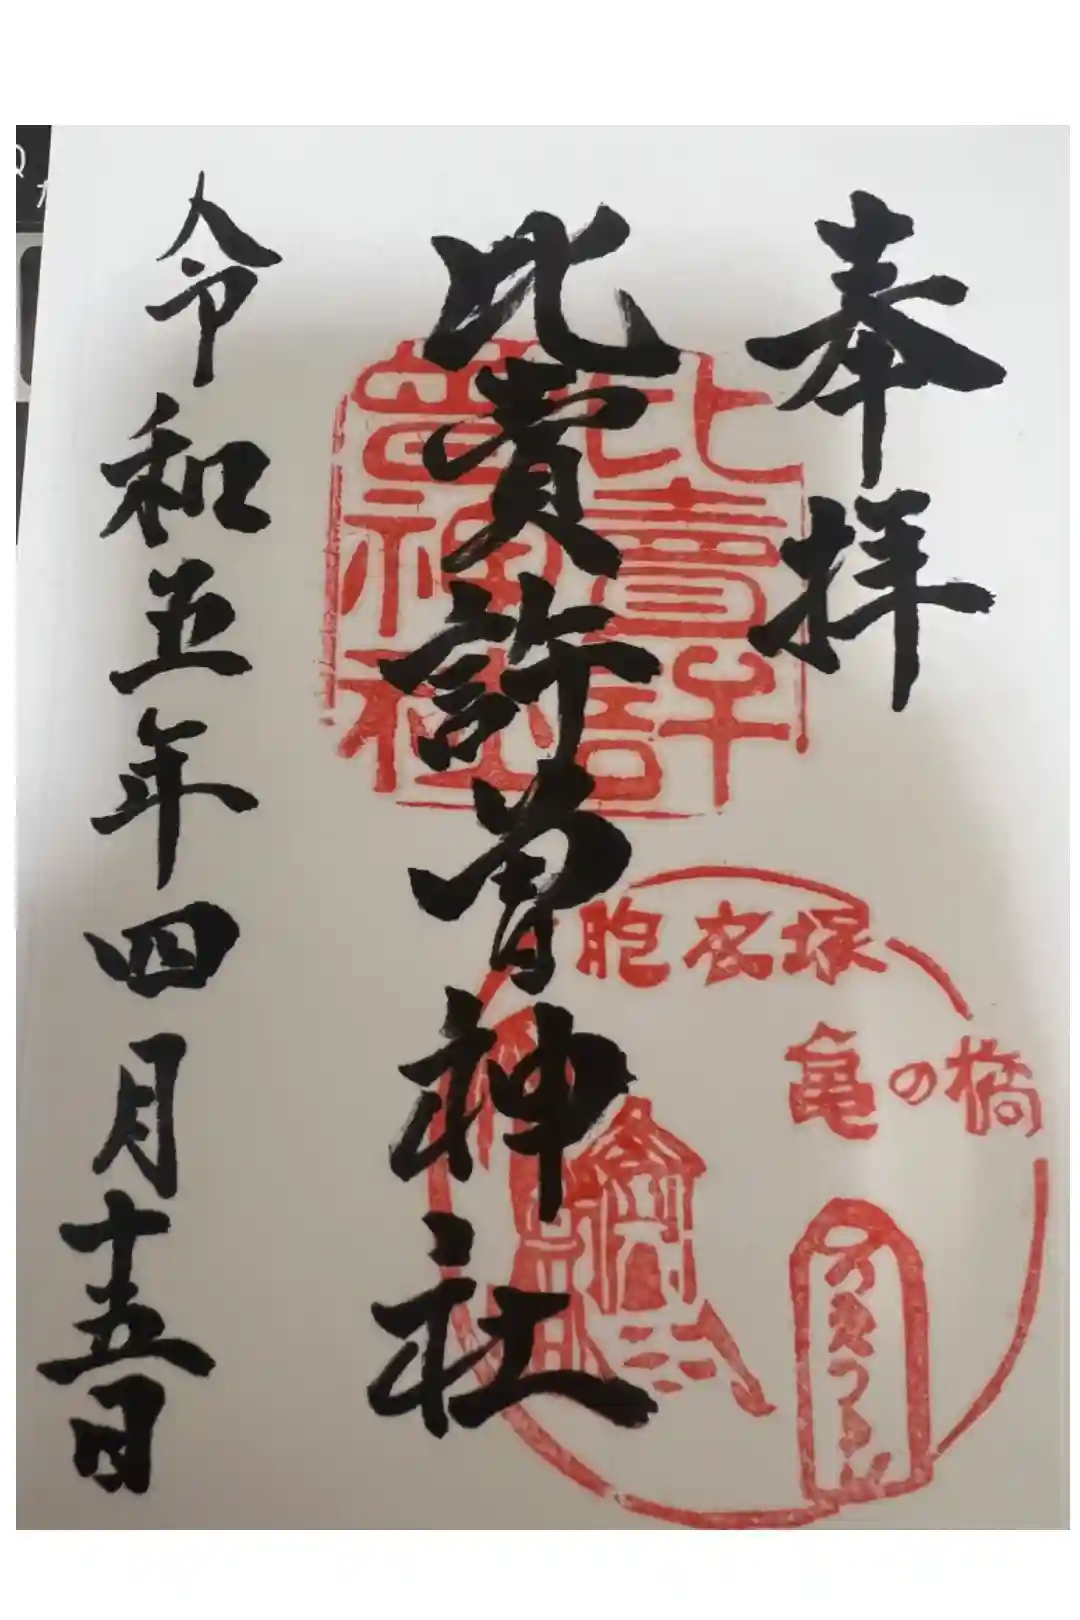 奉拝
比賣許曽神社
令和五年四月十五日
比賣許
曽神社
胞衣塚
亀の橋